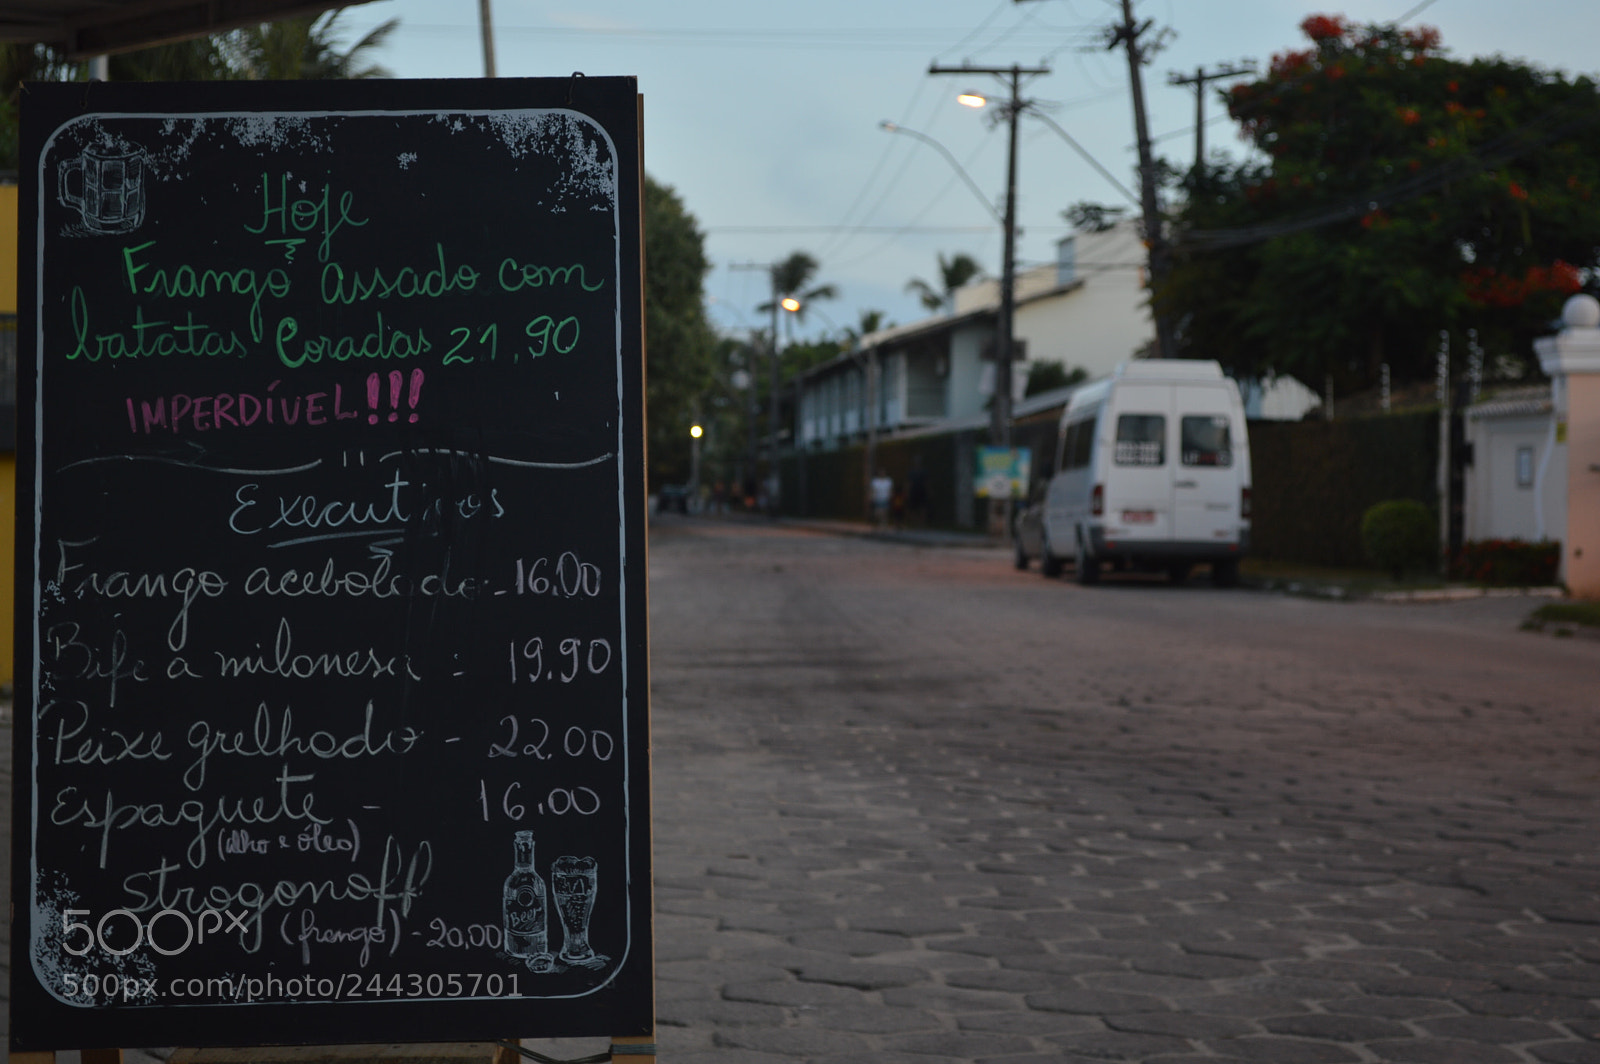 Hoje
Frango assado com
batatas Coradas 21,90
IMPERDÍVEL!!!
Executivos
Frango acebolado - 16.00
Bife a milanesa : 19.90
Peixe grelhado - 22.00
Espaguete - 16.00
(alho e óleo)
Strogonoff
(frango) - 20,00
Beer
500px
500px.com/photo/244305701